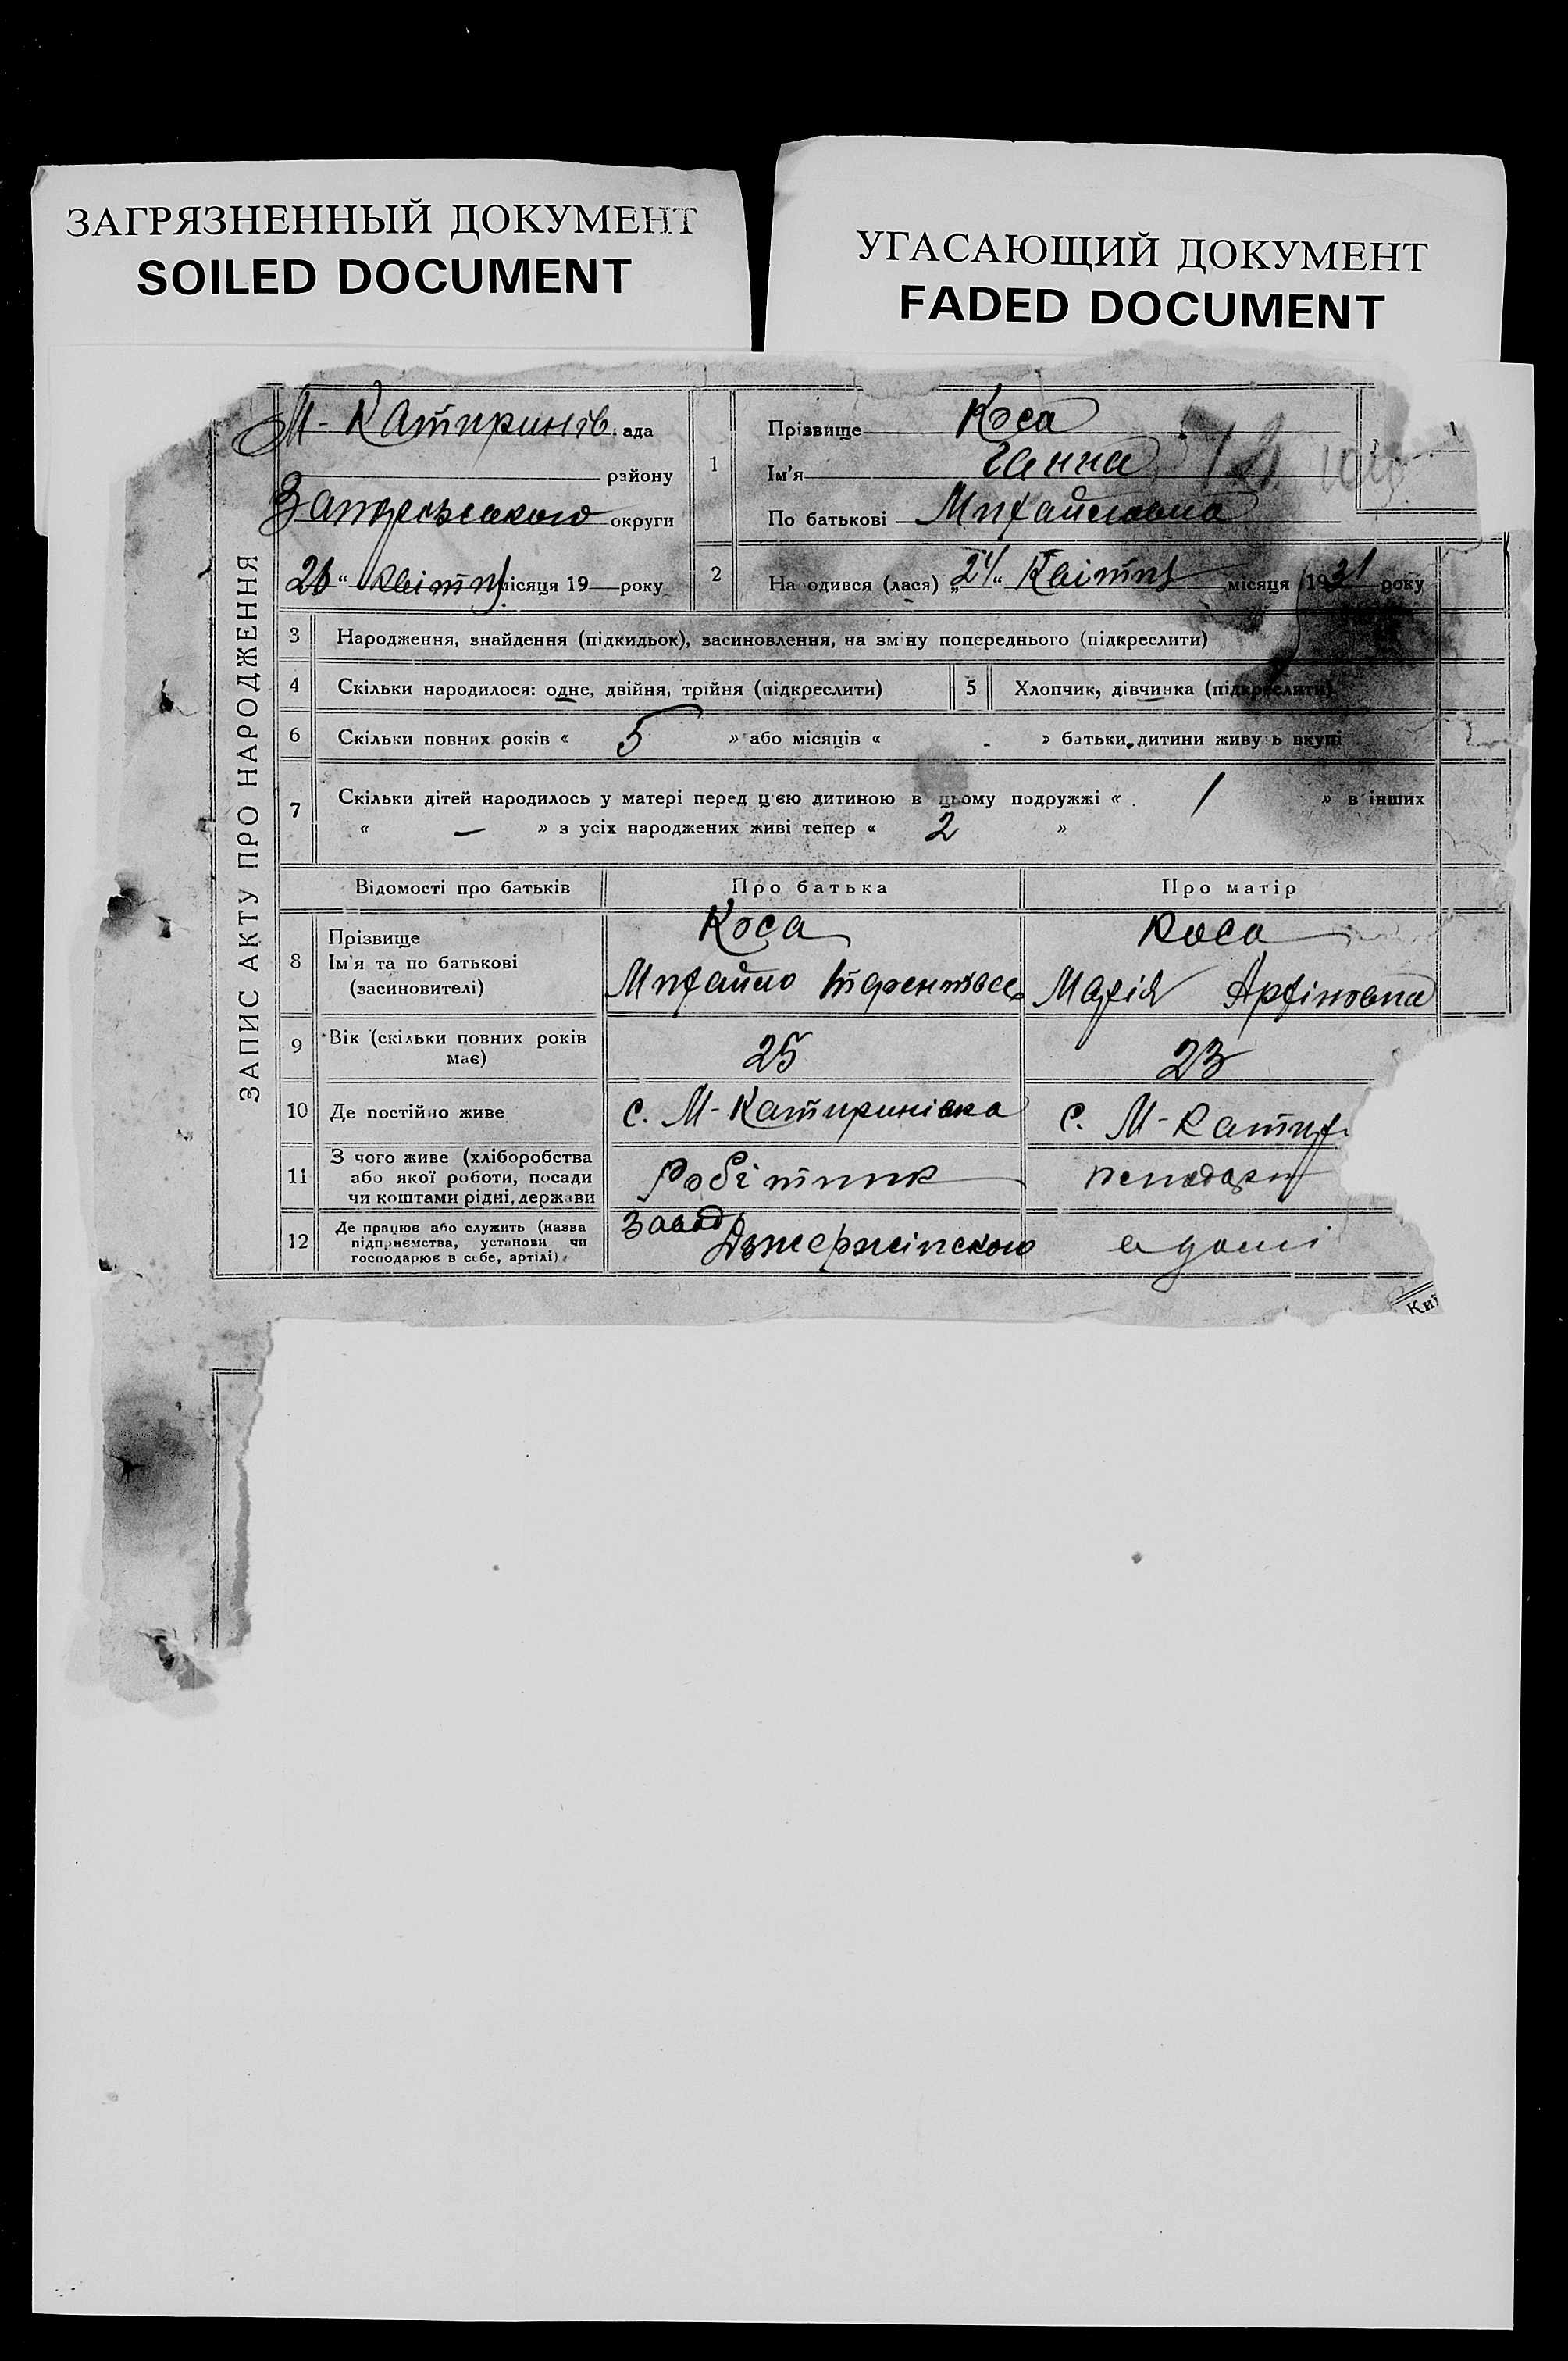 ЗАГРЯЗНЕННЫЙ ДОКУМЕНТ
SOILED DOCUMENT
УГАСАЮЩИЙ ДОКУМЕНТ
FADED DOCUMENT
ЗАПИС АКТУ ПРО НАРОДЖЕННЯ
М-Катиринів. ада
району
округи
26 “ Квітня місяця 19 року
1
Прізвище Коса
Ім'я Ганна
По батькові Михайловна
2
На одився (лася) „24“ Квітня місяця 1931 року
3 Народження, знайдення (підкидьок), засиновлення, на зміну попереднього (підкреслити)
4 Скільки народилося: одне, двійня, трійня (підкреслити)
5 Хлопчик, дівчинка (підкреслити)
6 Скільки повних років « 5 » або місяців « » батьки дитини живуть вкупі
7 Скільки дітей народилось у матері перед цією дитиною в цьому подружжі « 1 » в інших
« — » з усіх народжених живі тепер « 2 »
Відомості про батьків
Про батька
Про матір
8 Прізвище
Ім'я та по батькові
(засиновителі)
Коса
Михайло
Коса
Марія
9 Вік (скільки повних років
має)
25
23
10 Де постійно живе
с. М-Катиринівка
с. М-Катир
11 З чого живе (хліборобства
або якої роботи, посади
чи коштами рідні, держави
Робітник
12 Де працює або служить (назва
підприємства, установи чи
господарює в себе, артілі)
Завод
Дзержінского
в домі
Киї